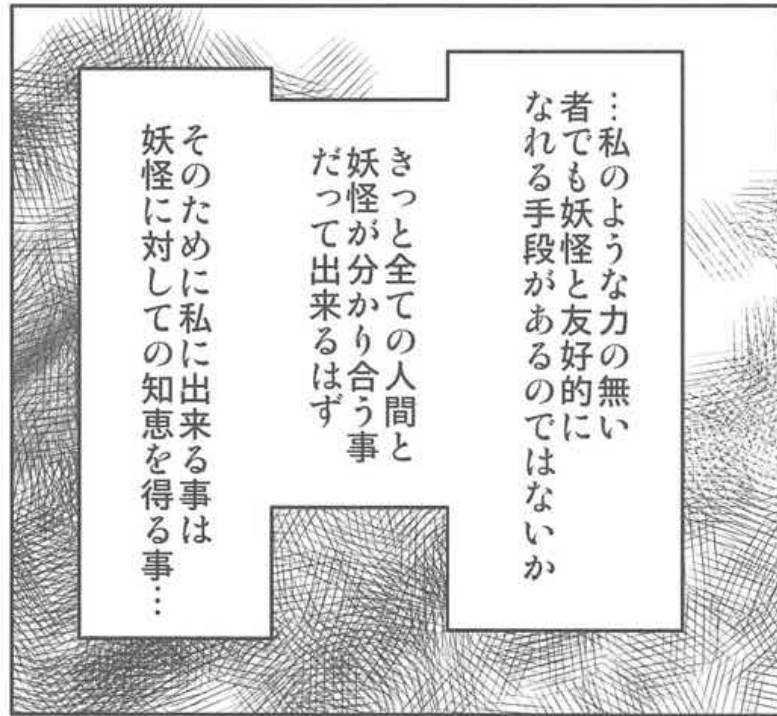 …私のような力の無い
者でも妖怪と友好的に
なれる手段があるのではないか
きっと全ての人間と
妖怪が分かり合う事
だって出来るはず
そのために私に出来る事は
妖怪に対しての知恵を得る事…